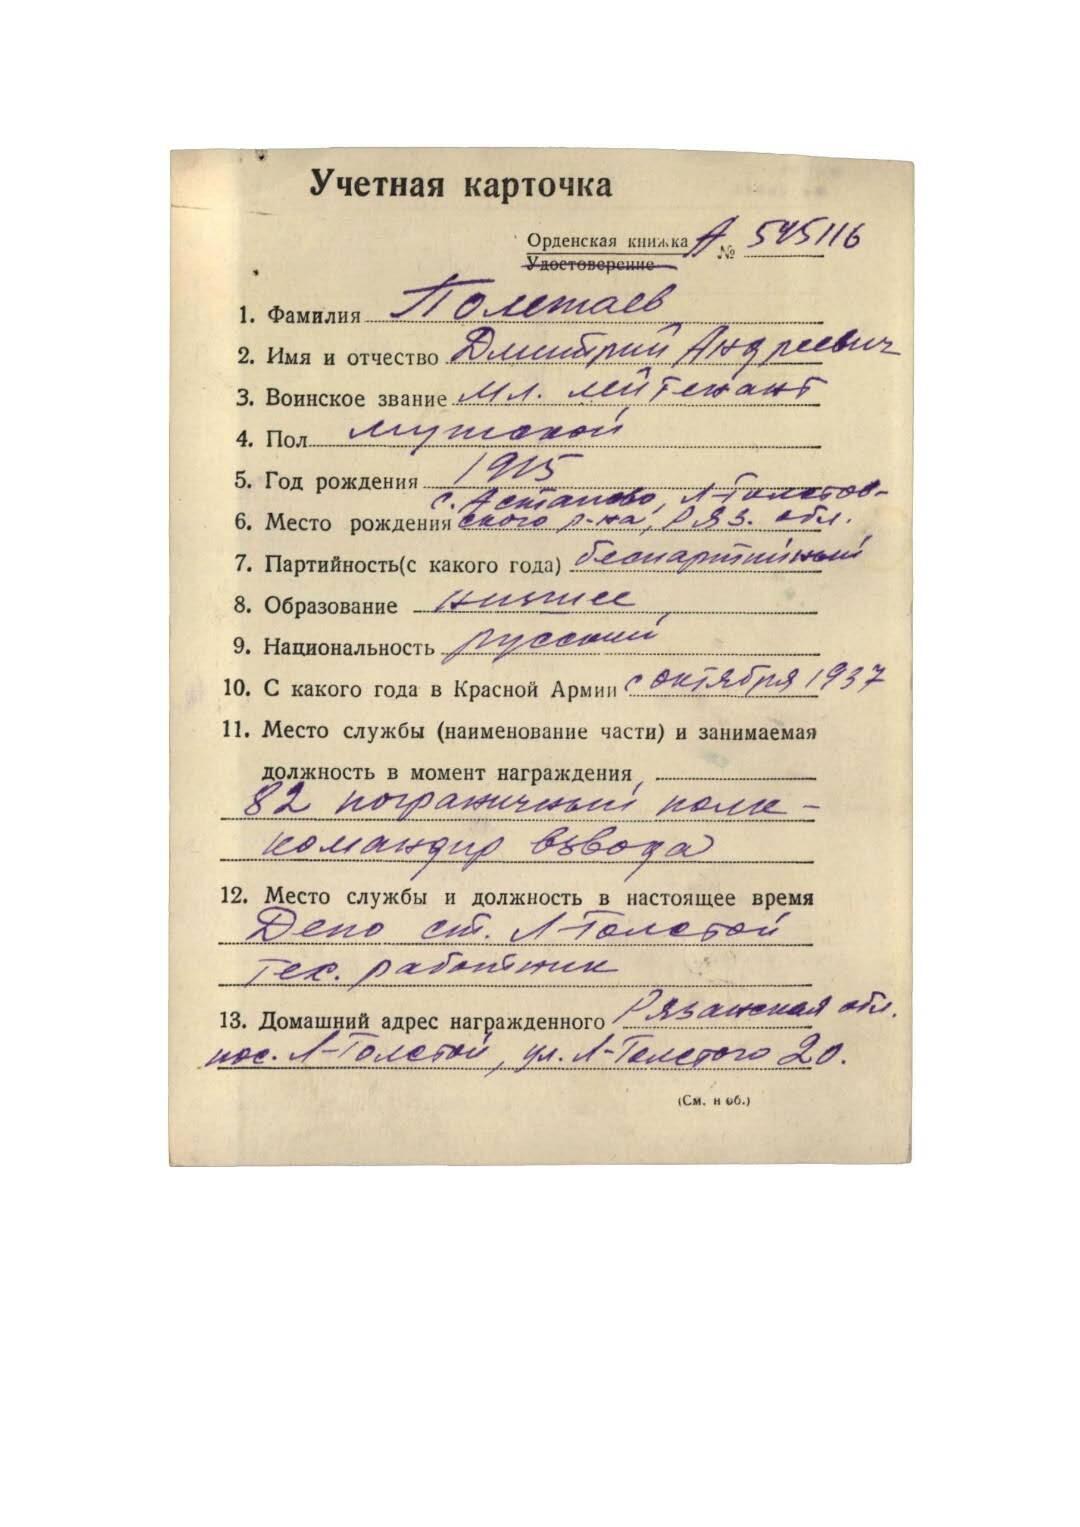 Учетная карточка
Орденская книжка А № 545116
Удостоверение
1. Фамилия Полетаев
2. Имя и отчество Дмитрий Андреевич
3. Воинское звание мл. лейтенант
4. Пол мужской
5. Год рождения 1915
с. Астапово, Л-Толстов-
6. Место рождения ского р-на, Ряз. обл.
7. Партийность(с какого года) беспартийный
8. Образование низшее
9. Национальность русский
10. С какого года в Красной Армии с октября 1937
11. Место службы (наименование части) и занимаемая
должность в момент награждения
82 пограничный полк -
командир взвода
12. Место службы и должность в настоящее время
Депо ст. Л-Толстой
тех. работник
13. Домашний адрес награжденного Рязанская обл.
пос. Л-Толстой, ул. Л-Толстого 20.
(См. н об.)